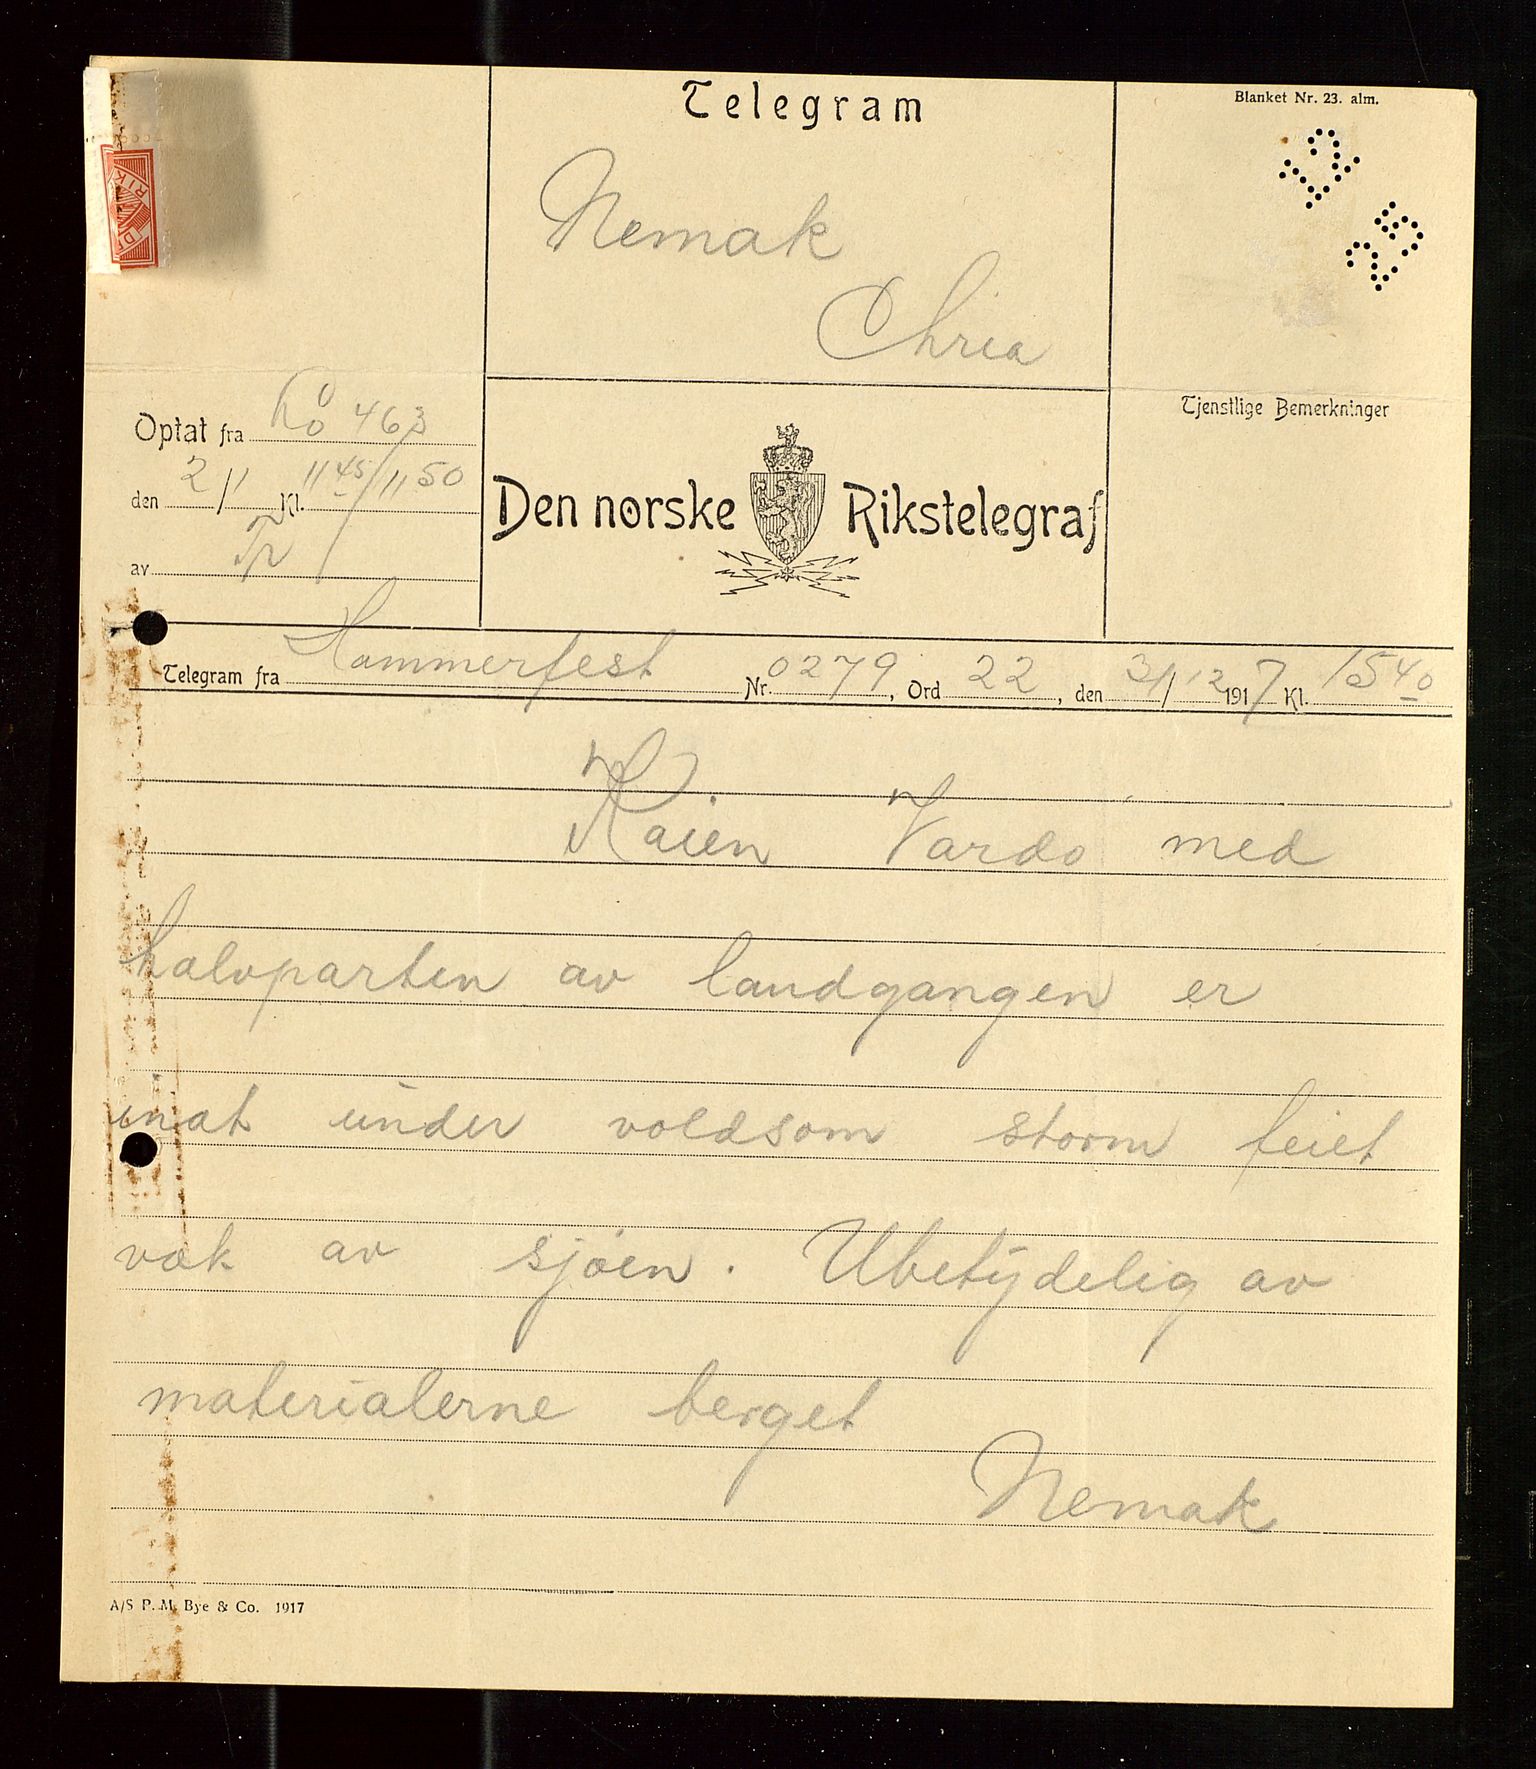 Telegram
Blanket Nr. 23. alm.
Nemak
Chria
Optat fra 463
den 2/1 Kl. 11 45/11 50
av
Tjenstlige Bemerkninger
Den norske Rikstelegraf
Telegram fra Hammerfest Nr. 0279, Ord 22, den 31/12 1917 Kl. 15 40
Kaien Vardo med
halvparten av landgangen er
inat under voldsom storm feiet
væk av sjøen. Ubetydelig av
materialerne berget
Nemak
A/S P. M. Bye & Co. 1917